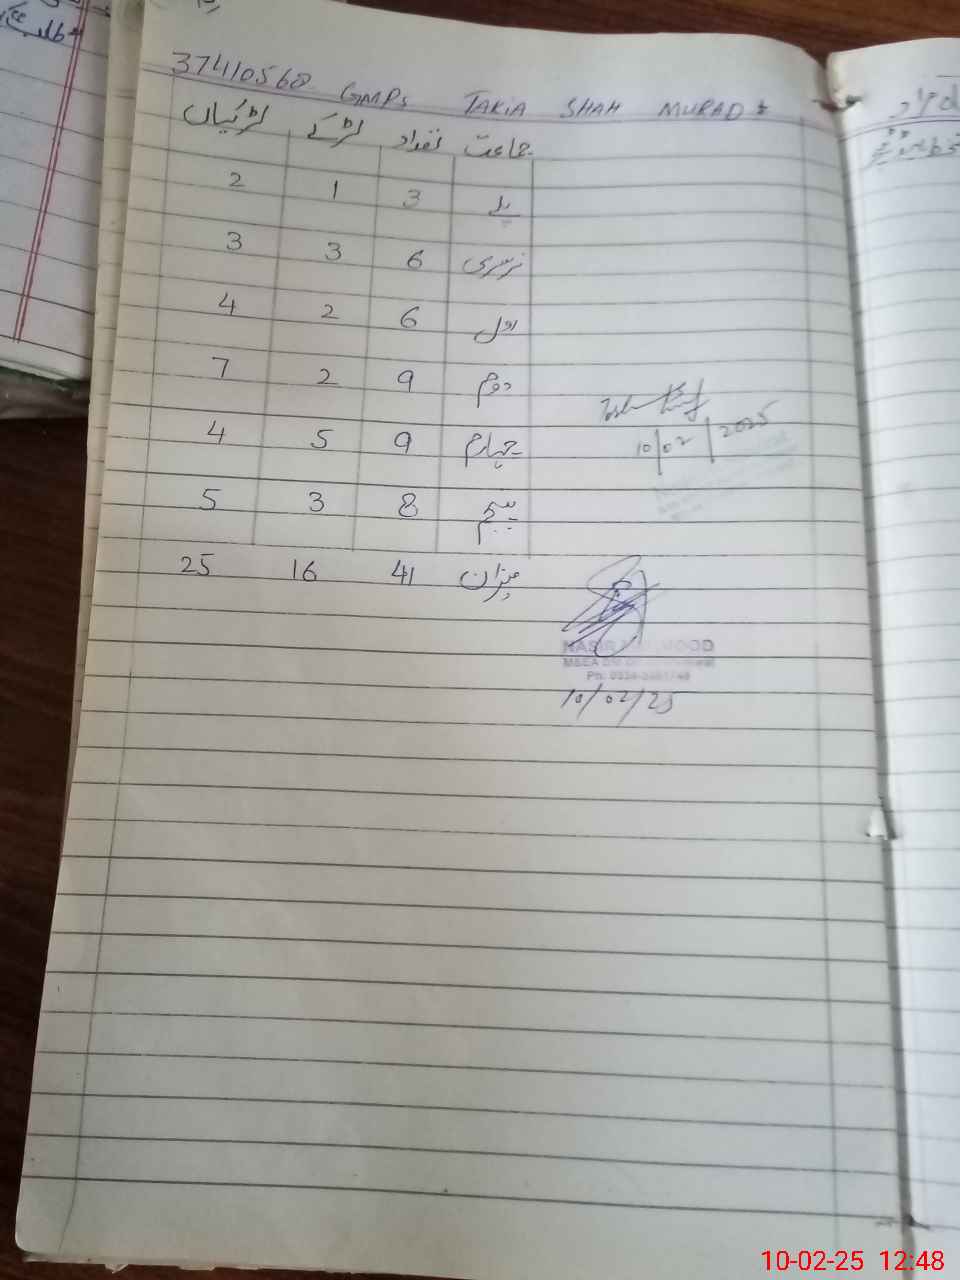 37410568 GMPS TAKIA SHAH MURAD
جماعت تعداد لڑکے لڑکیاں
پلے 3 1 2
نرسری 6 3 3
اول 6 2 4
دوم 9 2 7
چہارم 9 5 4
پنجم 8 3 5
میزان 41 16 25
10/02/2025
NASIR
M&EA
Ph: 0334-
10/02/25
10-02-25 12:48